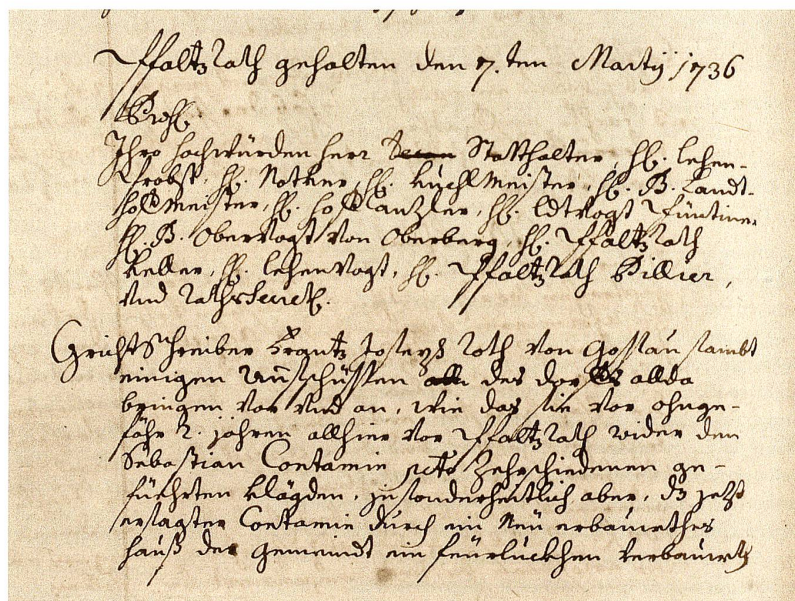 Pfaltz Rath gehalten den 7.ten Martij 1736
Ihro hochwürden herr Statthalter, hh. Lehen-
Probst, hh. Notker, hh. Kuchlmeister, hh. B. Landt-
hoffmeister, hh. hoffcantzler, hh. ldtvogt Püntiner
hh. B. Obervogt von Oberberg, hh. Pfaltz Rath
Keller, hh. Lehenvogt, hh. Pfaltz Rath Billier,
und
Grichtschreiber Frantz Joseph Roth von Gossau sambt
einigen Außschüssen des dorffs allda
bringen vor und an, wie das sie vor ohnge-
fähr 2. jahren allhier vor Pfaltz Rath wider den
Sebastian Contamin pcto verschiedenen ge-
führten klägden, insonderheitlich aber, dz jetzt
ersagter Contamin durch ein neü erbauwthes
hauß der gemeindt ein feürlückhen verbauwth